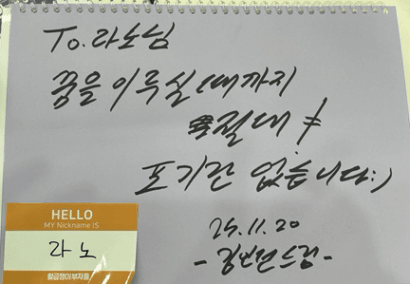 To. 라노님
꿈을 이루실 때까지
절대 ≠
포기란 없습니다:)
25.11.20
HELLO
MY Nickname IS
라노